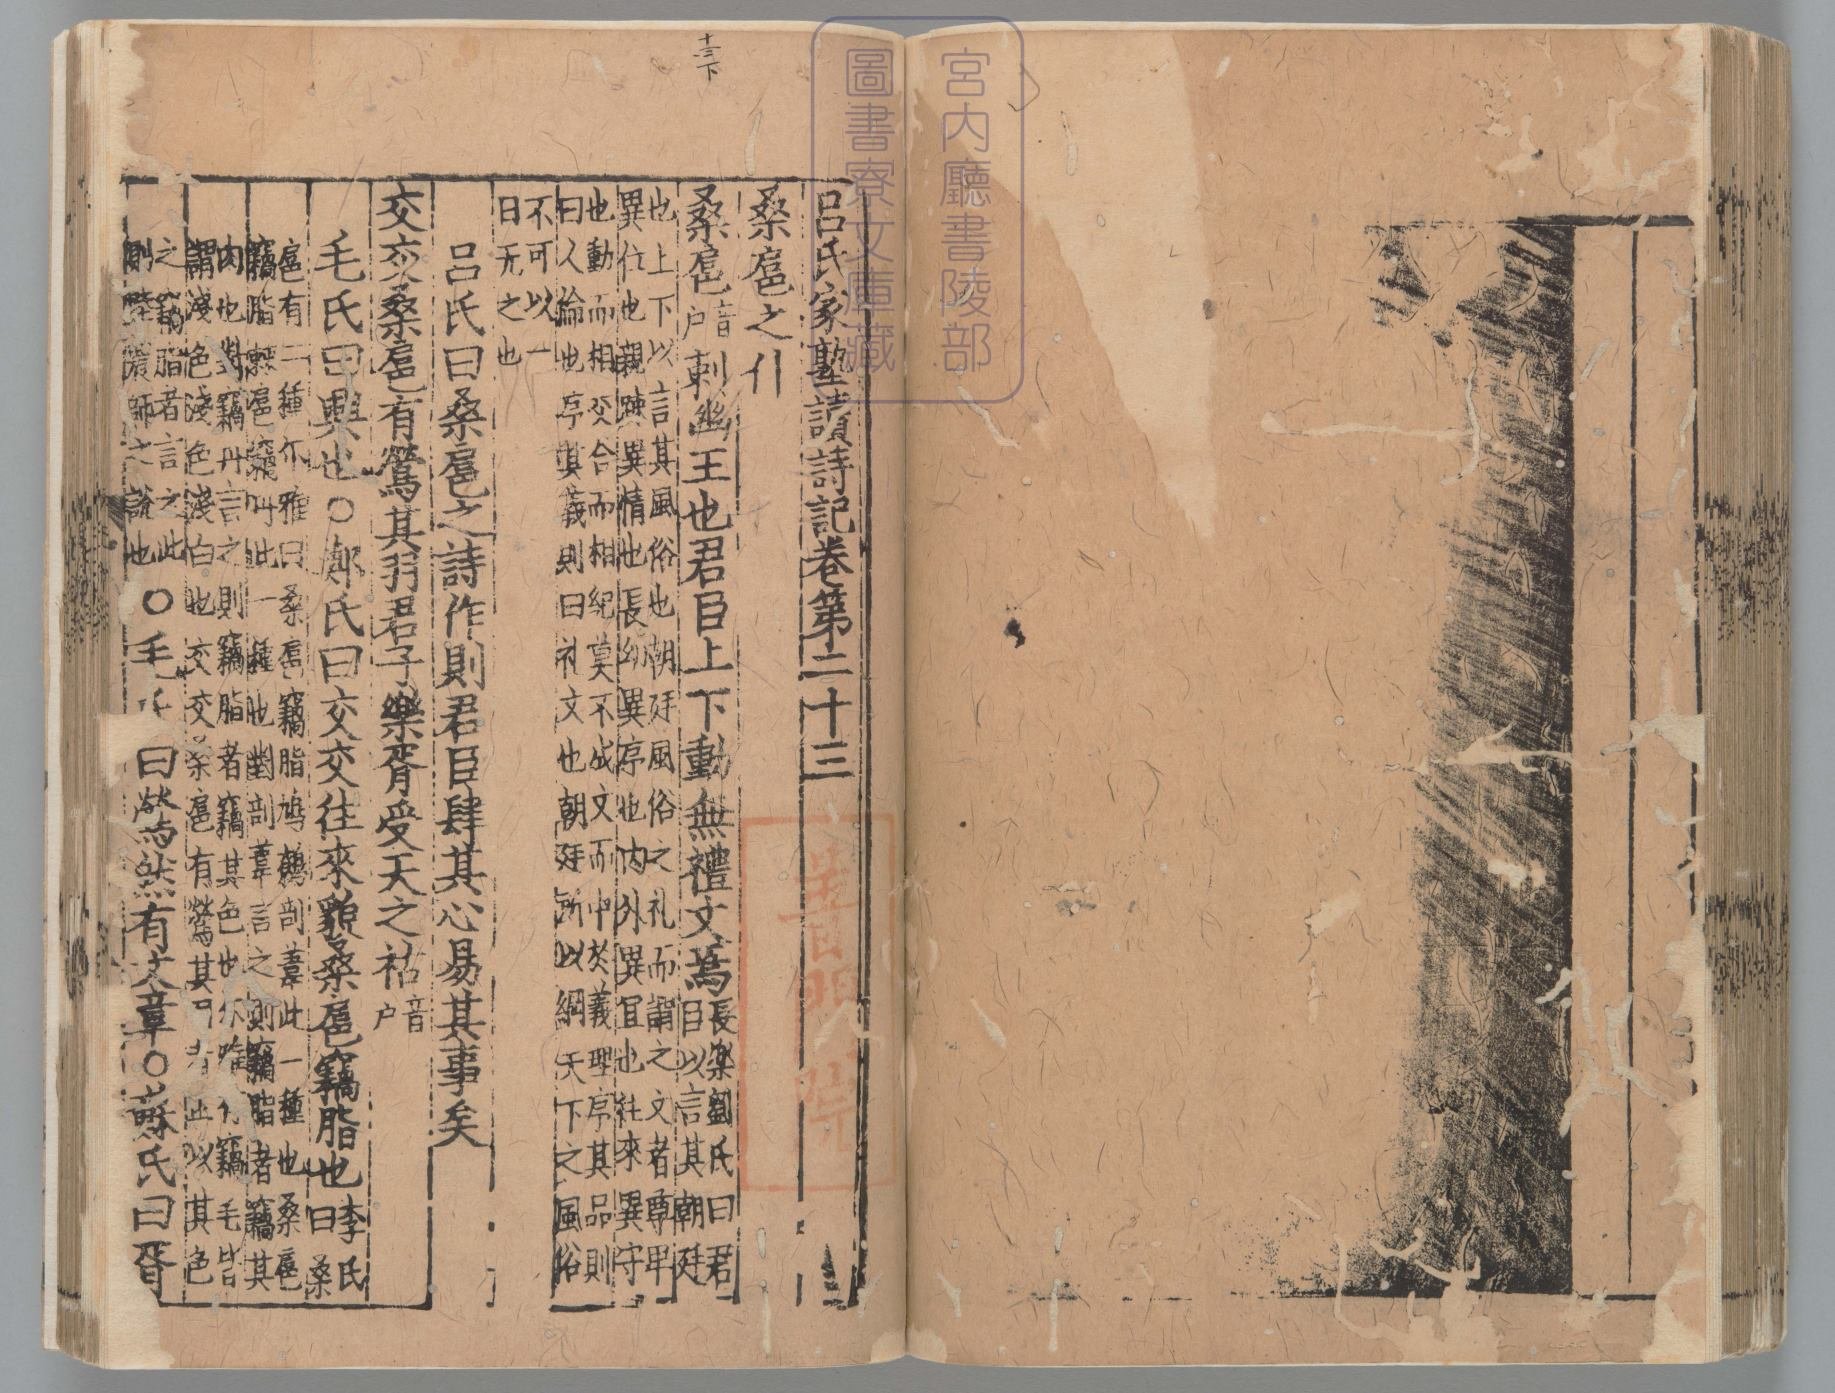 宮内廳書陵部
圖書寮文庫藏
十三下
呂氏家塾讀詩記卷第二十三
桑扈之什
桑扈音户刺幽王也君臣上下動無禮文焉長樂劉氏曰君臣以言其朝廷
也上下以言其風俗也朝廷風俗之礼而謂之文者尊卑
異位也親踈異情也長幼異序也内外異宜也往來異守
也動而相交合而相紀莫不成文而中於義理序其品則
曰人倫也序其義則曰礼文也朝廷所以綱天下之風俗
不可以一
日无之也
呂氏曰桑扈之詩作則君臣肆其心易其事矣
交交桑扈有鶯其羽君子樂胥受天之祜音户
毛氏曰興也○鄭氏曰交交往來貌桑扈竊脂也李氏曰桑
扈有二種尒雅曰桑扈竊脂鳲鴂剖葦此一種也桑扈
竊脂棘扈竊丹此一種也對剖葦言之則竊脂者竊其
肉也對竊丹言之則竊脂者竊其色也尒雅竊毛皆
謂淺色淺色淺白也交交桑扈有鶯其羽者正以其色
之竊脂者言之此
則陸農師之說也○毛氏曰鶯然有文章○蘇氏曰胥